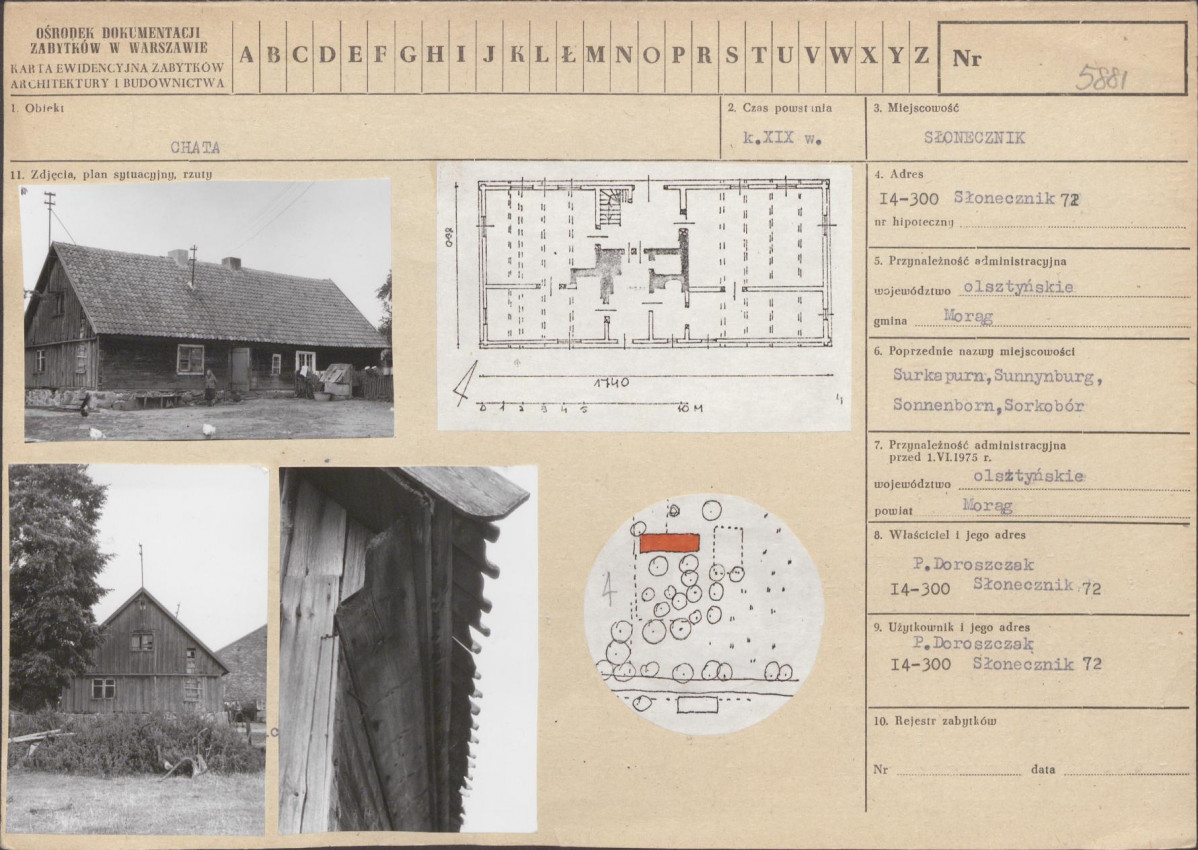 OŚRODEK DOKUMENTACJI
ZABYTKÓW W WARSZAWIE
KARTA EWIDENCYJNA ZABYTKÓW
ARCHITEKTURY I BUDOWNICTWA
A B C D E F G H I J K L Ł M N O P R S T U V W X Y Z
Nr 5881
1. Obiekt
CHATA
2. Czas powstania
k.XIX w.
3. Miejscowość
SŁONECZNIK
11. Zdjęcia, plan sytuacyjny, rzuty
1740
0 1 2 3 4 5 10 M
4. Adres
I4-300 Słonecznik 72
nr hipoteczny
5. Przynależność administracyjna
województwo olsztyńskie
gmina Morąg
6. Poprzednie nazwy miejscowości
Surkapurn, Sunnynburg,
Sonnenborn, Sorkobór
7. Przynależność administracyjna
przed 1.VI.1975 r.
województwo olsztyńskie
powiat Morąg
8. Właściciel i jego adres
P.Doroszczak
I4-300 Słonecznik 72
9. Użytkownik i jego adres
P.Doroszczak
I4-300 Słonecznik 72
10. Rejestr zabytków
Nr data